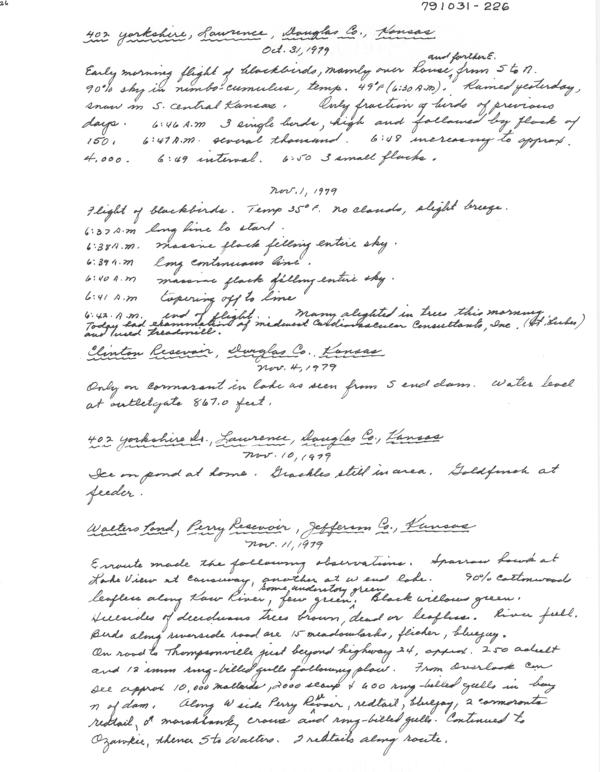 791031-226
26
402 Yorkshire, Lawrence, Douglas Co., Kansas
Oct. 31, 1979
and farther E.
Early morning flight of blackbirds, mainly over house, from S to N.
90% sky in nimbo-cumulus, temp. 49°F (6:30 A.M.). Rained yesterday,
snow in S. central Kansas. Only fraction of birds of previous
days. 6:46 A.M 3 single birds, high and followed by flock of
150. 6:47 A.M. several thousand. 6:48 increasing to approx.
4,000. 6:49 interval. 6:50 3 small flocks.
Nov. 1, 1979
Flight of blackbirds. Temp 35° F. No clouds, slight breeze.
6:37 A.M long line to start.
6:38 A.M. massive flock filling entire sky.
6:39 A.M. long continuous line.
6:40 A.M massive flock filling entire sky.
6:41 A.M tapering off to line
6:42 A.M. end of flight. Many alighted in trees this morning.
Today had examination of Midwest Cardiovascular Consultants, Inc.
and used treadmill.
Clinton Resevoir, Douglas Co., Kansas
Nov. 4, 1979
Only on cormorant in lake as seen from S end dam. Water level
at outletgate 867.0 feet.
402 Yorkshire Dr., Lawrence, Douglas Co., Kansas
Nov. 10, 1979
Ice on pond at home. Grackles still in area. Goldfinch at
feeder.
Walters Pond, Perry Resevoir, Jefferson Co., Kansas
Nov. 11, 1979
Enroute made the following observations. Sparrow hawk at
Lake View at causeway, another at W end lake. 90% cottonwood
some understory green
leafless along Kaw River, few green. Black willows green.
Hillsides of deciduous trees brown, dead or leafless. River full.
Birds along riverside road are 15 meadowlarks, flicker, bluejay.
On road to Thompsonville just beyond highway 24, approx. 250 adult
and 12 imm ring-billed gulls following plow. From Overlook can
see approx 10,000 mallards, 2000 scaup & 600 ring-billed gulls in bay
N of dam. Along W side Perry Resevoir, redtail, bluejay, 2 cormorants
redtail, ♂ marsh hawk, crows and ring-billed gulls. Continued to
Ozawkie, thence S to Walters. 2 redtails along route.